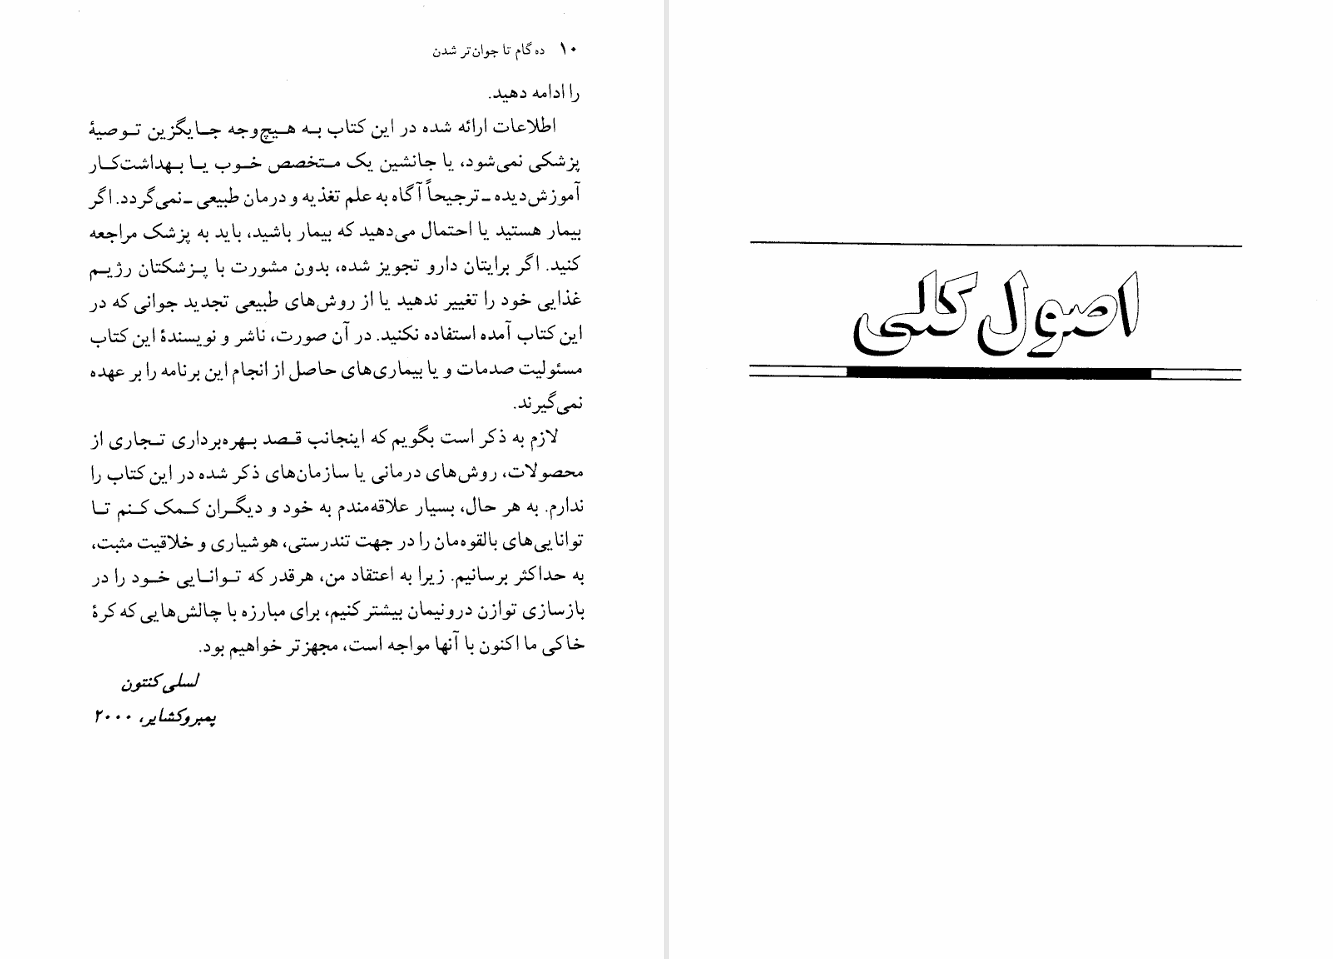 ۱۰ ده گام تا جوان‌تر شدن
را ادامه دهید.
اطلاعات ارائه شده در این کتاب به هیچ‌وجه جایگزین توصیهٔ
پزشکی نمی‌شود، یا جانشین یک متخصص خوب یا بهداشت‌کار
آموزش‌دیده ـ ترجیحاً آگاه به علم تغذیه و درمان طبیعی ـ نمی‌گردد. اگر
بیمار هستید یا احتمال می‌دهید که بیمار باشید، باید به پزشک مراجعه
کنید. اگر برایتان دارو تجویز شده، بدون مشورت با پزشکتان رژیم
غذایی خود را تغییر ندهید یا از روش‌های طبیعی تجدید جوانی که در
این کتاب آمده استفاده نکنید. در آن صورت، ناشر و نویسندهٔ این کتاب
مسئولیت صدمات و یا بیماری‌های حاصل از انجام این برنامه را بر عهده
نمی‌گیرند.
لازم به ذکر است بگویم که اینجانب قصد بهره‌برداری تجاری از
محصولات، روش‌های درمانی یا سازمان‌های ذکر شده در این کتاب را
ندارم. به هر حال، بسیار علاقه‌مندم به خود و دیگران کمک کنم تا
توانایی‌های بالقوه‌مان را در جهت تندرستی، هوشیاری و خلاقیت مثبت،
به حداکثر برسانیم. زیرا به اعتقاد من، هرقدر که توانایی خود را در
بازسازی توازن درونیمان بیشتر کنیم، برای مبارزه با چالش‌هایی که کرهٔ
خاکی ما اکنون با آنها مواجه است، مجهزتر خواهیم بود.
لسلی کنتون
پمبروکشایر، ۲۰۰۰
اصول کلی